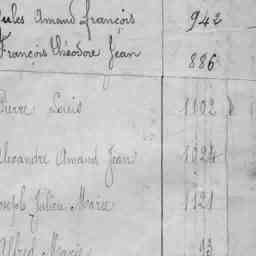 Jules Amand François 942
François Théodore Jean 886
Pierre Louis 1102
Alexandre Amand Jean 1024
Joseph Julien Marie 1121
Alfred Marie 93